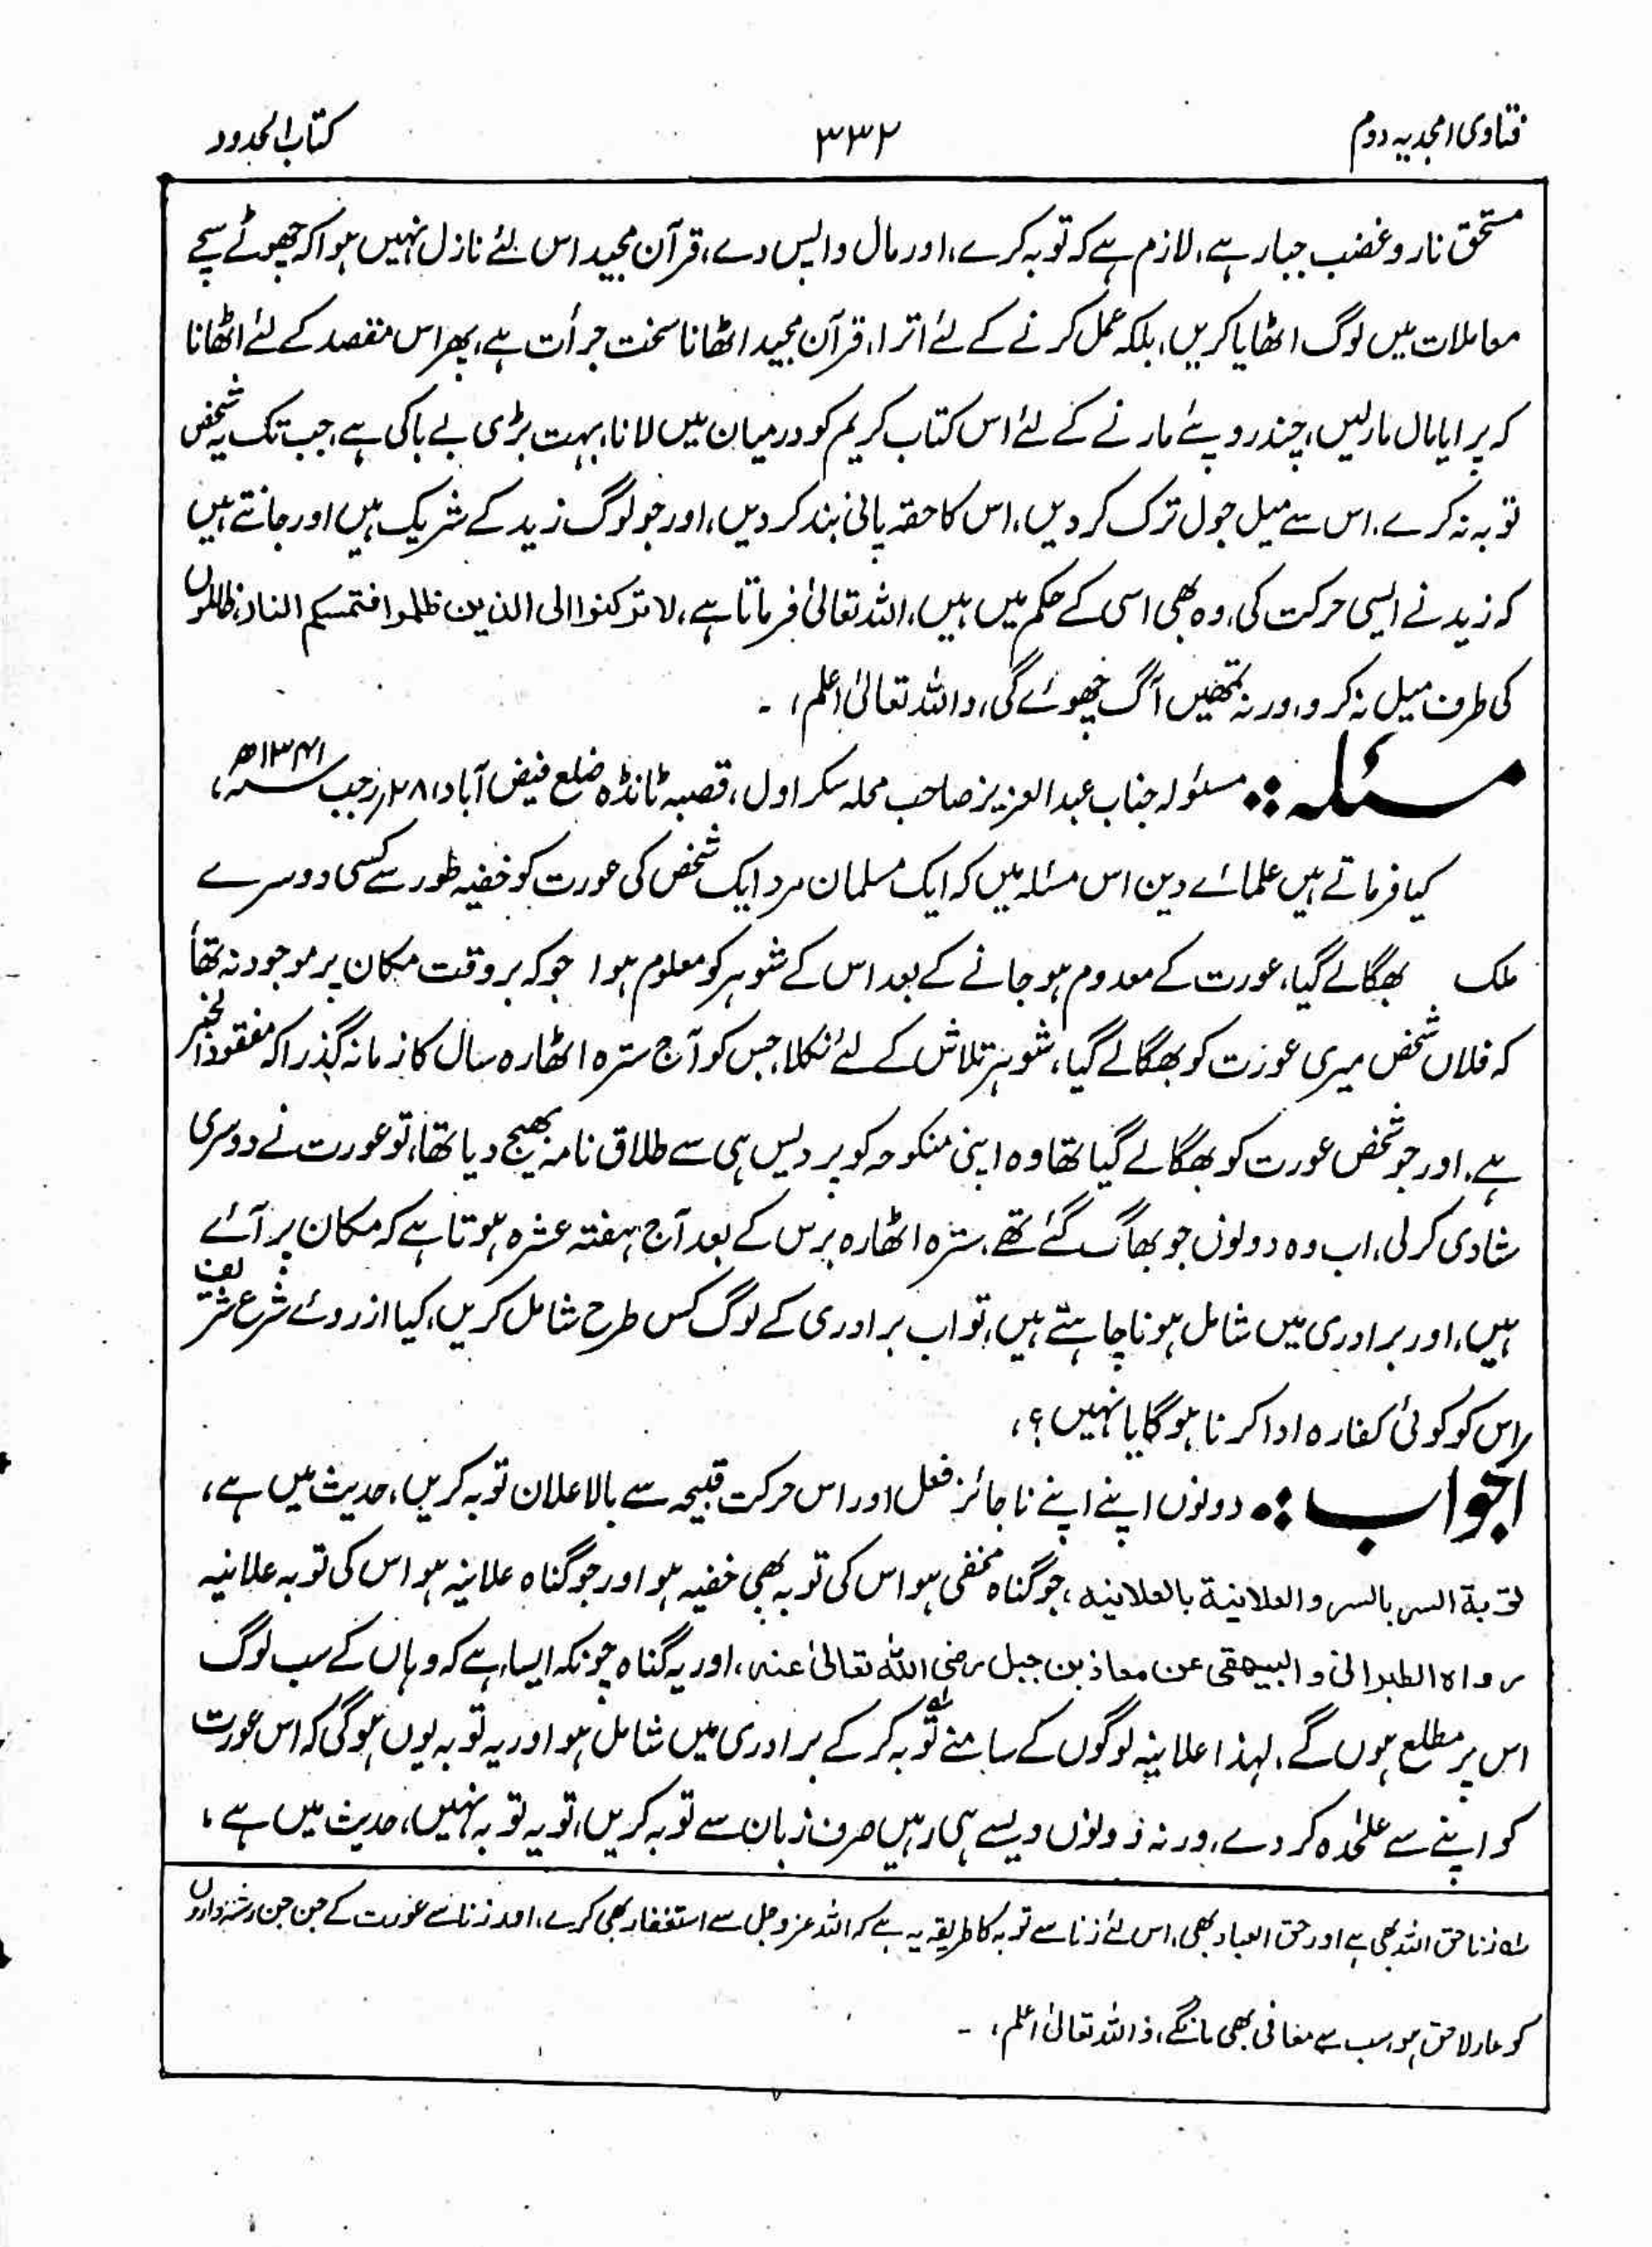 فتاوی امجدیہ دوم
۳۳۲
کتاب الحدود
مستحق نار و غضب جبار ہے، لازم ہے کہ توبہ کرے، اور مال واپس دے، قرآن مجید اس لئے نازل نہیں ہوا کہ جھوٹے سچے
معاملات میں لوگ اٹھایا کریں، بلکہ عمل کرنے کے لئے اترا، قرآن مجید اٹھانا سخت جرأت ہے، پھر اس مقصد کے لئے اٹھانا
کہ پرایا مال مارلیں، چند روپئے مارنے کے لئے اس کتاب کریم کو درمیان میں لانا، بہت بڑی بے باکی ہے، جب تک یہ شخص
توبہ نہ کرے، اس سے میل جول ترک کردیں، اس کا حقہ پانی بند کردیں، اور جو لوگ زید کے شریک ہیں اور جانتے ہیں
کہ زید نے ایسی حرکت کی، وہ بھی اسی کے حکم میں ہیں، اللہ تعالیٰ فرماتا ہے، لا ترکنوا الی الذین ظلموا فتمسکم النار، ظالموں
کی طرف میل نہ کرو، ورنہ تمھیں آگ چھوئے گی، واللہ تعالیٰ اعلم، ۔
مسئلہ :: مسئولہ جناب عبد العزیز صاحب محلہ سکر اول، قصبہ ٹانڈہ ضلع فیض آباد، ۲۸؍ رجب سنہ ۱۳۴۱ھ،
کیا فرماتے ہیں علمائے دین اس مسئلہ میں کہ ایک مسلمان مرد ایک شخص کی عورت کو خفیہ طور سے کسی دوسرے
ملک بھگا لے گیا، عورت کے معدوم ہوجانے کے بعد اس کے شوہر کو معلوم ہوا جو کہ بر وقت مکان پر موجود نہ تھا
کہ فلاں شخص میری عورت کو بھگا لے گیا، شوہر تلاش کے لئے نکلا، جس کو آج سترہ اٹھارہ سال کا زمانہ گذرا کہ مفقود الخبر
ہے، اور جو شخص عورت کو بھگا لے گیا تھا وہ اپنی منکوحہ کو پردیس ہی سے طلاق نامہ بھیج دیا تھا، تو عورت نے دوسری
شادی کرلی، اب وہ دونوں جو بھاگ گئے تھے، سترہ اٹھارہ برس کے بعد آج ہفتہ عشرہ ہوتا ہے کہ مکان پر آئے
ہیں، اور برادری میں شامل ہونا چاہتے ہیں، تو اب برادری کے لوگ کس طرح شامل کریں، کیا از روئے شرع شریف
اس کو کوئی کفارہ ادا کرنا ہوگا یا نہیں؟،
الجواب :: دونوں اپنے اپنے ناجائز فعل اور اس حرکت قبیحہ سے بالاعلان توبہ کریں، حدیث میں ہے،
توبۃ السر بالسر والعلانیۃ بالعلانیہ، جو گناہ مخفی ہو اس کی توبہ بھی خفیہ ہو اور جو گناہ علانیہ ہو اس کی توبہ علانیہ
رواہ الطبرانی و البیہقی عن معاذ بن جبل رضی اللہ تعالیٰ عنہ، اور یہ گناہ چونکہ ایسا ہے کہ وہاں کے سب لوگ
اس پر مطلع ہوں گے، لہذا علانیہ لوگوں کے سامنے توبہ لہ کرکے برادری میں شامل ہو اور یہ توبہ یوں ہوگی کہ اس عورت
کو اپنے سے علٰحدہ کردے، ورنہ دونوں ویسے ہی رہیں صرف زبان سے توبہ کریں، تو یہ توبہ نہیں، حدیث میں ہے،
لہ زنا حق اللہ بھی ہے اور حق العباد بھی، اس لئے زنا سے توبہ کا طریقہ یہ ہے کہ اللہ عزوجل سے استغفار بھی کرے، اور زنا سے عورت کے جن جن رشتہ داروں
کو عار لاحق ہو، سب سے معافی بھی مانگے، واللہ تعالیٰ اعلم، ۔